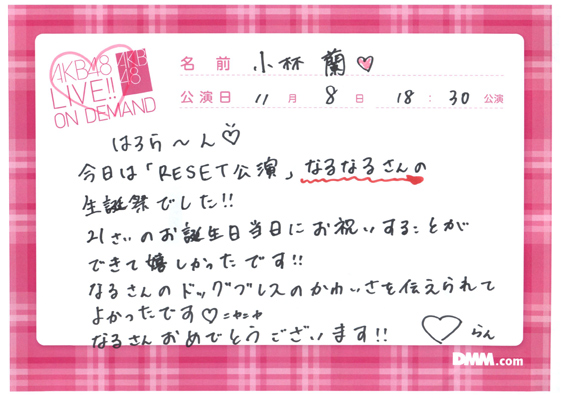 AKB48
LIVE!!
ON DEMAND
AKB
48
名前 小林 蘭♡
公演日 11月 8日 18:30公演
はろら〜ん♡
今日は「RESET公演」なるなるさんの
生誕祭でした!!
21さいのお誕生日当日にお祝いすることが
できて嬉しかったです!!
なるさんのドッグブレスのかわいさを伝えられて
よかったです♡ニヤニヤ
なるさんおめでとうございます!!
♡らん
DMM.com